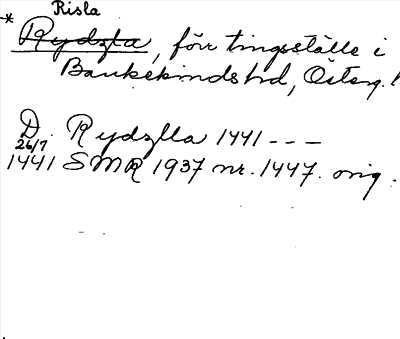 Risla
* Rydzta, förr tingsställe i
Bankekindshd, Österg.
D. Rydzlla 1441 - - -
26/7
1441 SMR 1937 nr. 1447. orig.